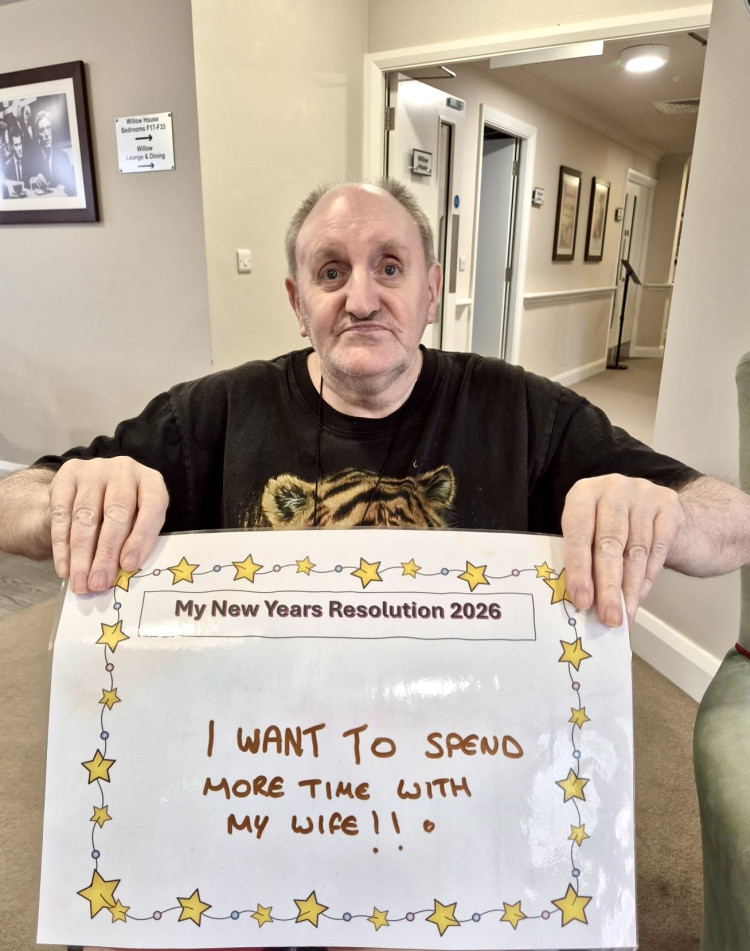 Willow House
Bedrooms F17-F35
Willow
Lounge & Dining
Willow
House
My New Years Resolution 2026
I WANT TO SPEND
MORE TIME WITH
MY WIFE!! .